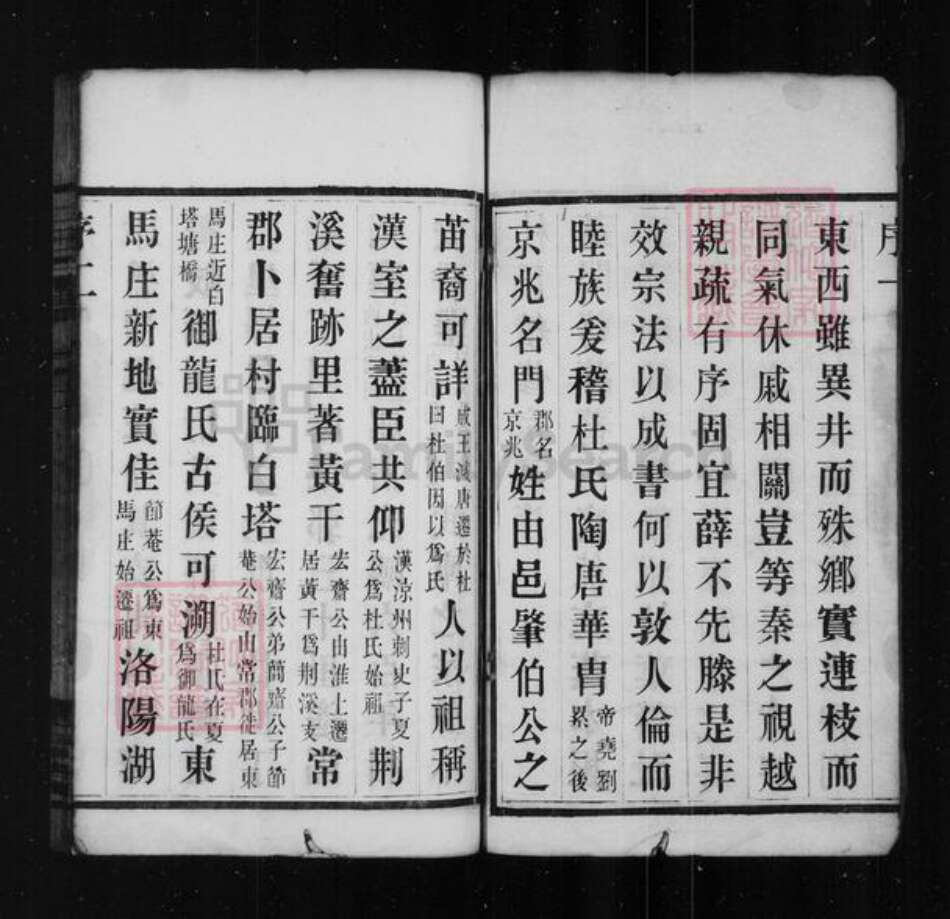 序一
東西雖異井而殊鄉實連枝而
同氣休戚相關豈等秦之視越
親疏有序固宜薛不先滕是非
效宗法以成書何以敦人倫而
睦族爰稽杜氏陶唐華冑帝堯劉累之後
京兆名門郡名京兆姓由邑肇伯公之
苗裔可詳成王滅唐遷於杜曰杜伯因以爲氏人以祖稱
漢室之藎臣共仰漢涼州刺史子夏公爲杜氏始祖荆
溪奮跡里著黃干宏齋公由淮上遷居黃干爲荆溪支常
郡卜居村臨白塔宏齋公弟簡齋公子節菴公始由常郡徙居東
馬庄近白塔塘橋御龍氏古侯可溯杜氏在夏爲御龍氏東
馬庄新地實佳節菴公爲東馬庄始遷祖洛陽湖
序二
FamilySearch